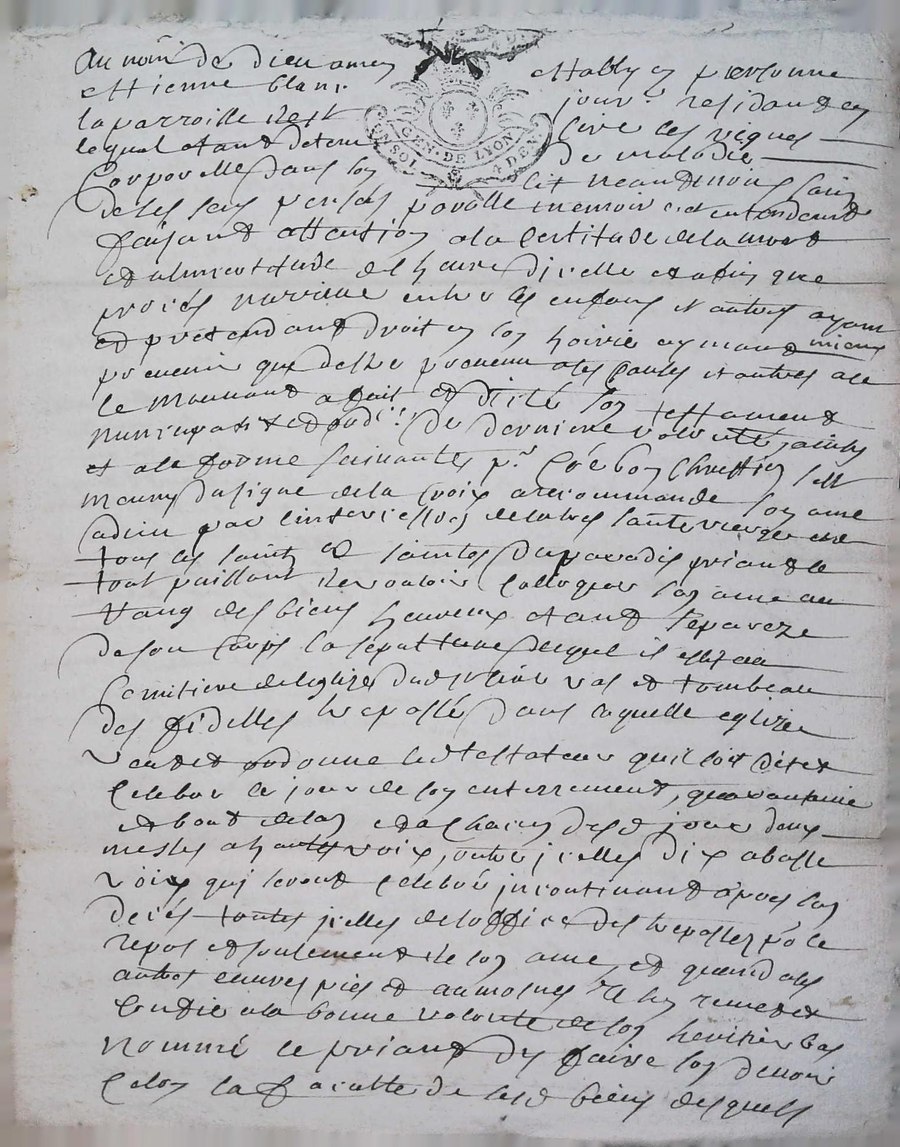 Au nom de dieu amen estably en personne
estienne blanc
la parroisse de st
lequel estant detenu de maladie
corporelle dans son lit neandmoins sain
de ses sens pensés parolle memoire et entendemt
faisant attention a la certitude de la mort
et a lincertitude de lheure dicelle et afin que
procés narrive entre ses enfans et autres ayant
et pretendant droit en son hoirie aymant mieux
prevenir que destre prevenu a ses causes et autres a ce
le mouvant a fait et dicté son testament
nuncupatif et derniere volonté
et a la forme suivante, pr. bon chrestien sest
muny du signe de la croix a recommandé son ame
a dieu par lintercession de la tres sainte vierge et de
tous les saints et saintes du paradis priant le
tout puissant de vouloir colloquer son ame au
rang des bien heureux estant separeze
de son corps la sepulture duquel il
cemitiere de leglize dud st vas et tombeau
des fidelles trepassés dans laquelle eglize
veut et ordonne led testateur quil soit dit et
celebré le jour de son enterrement, quarantaine
et bout de lan et a chacun desd jours deux
messes a haute voix, outre jcelles dix a basse
voix qui seront celebré jncontinant apres son
decés toutes jcelles de loffice des trepassez pr le
repos et soulement de son ame et quand a ses
autres euvres pies et aumosnes il sen remet et
confie a la bonne volonté de son heritier bas
nommé le priant dy faire son devoir
selon la faculté de sesd biens desquels
GEN. DE LYON
UN SOL 4 DEN.